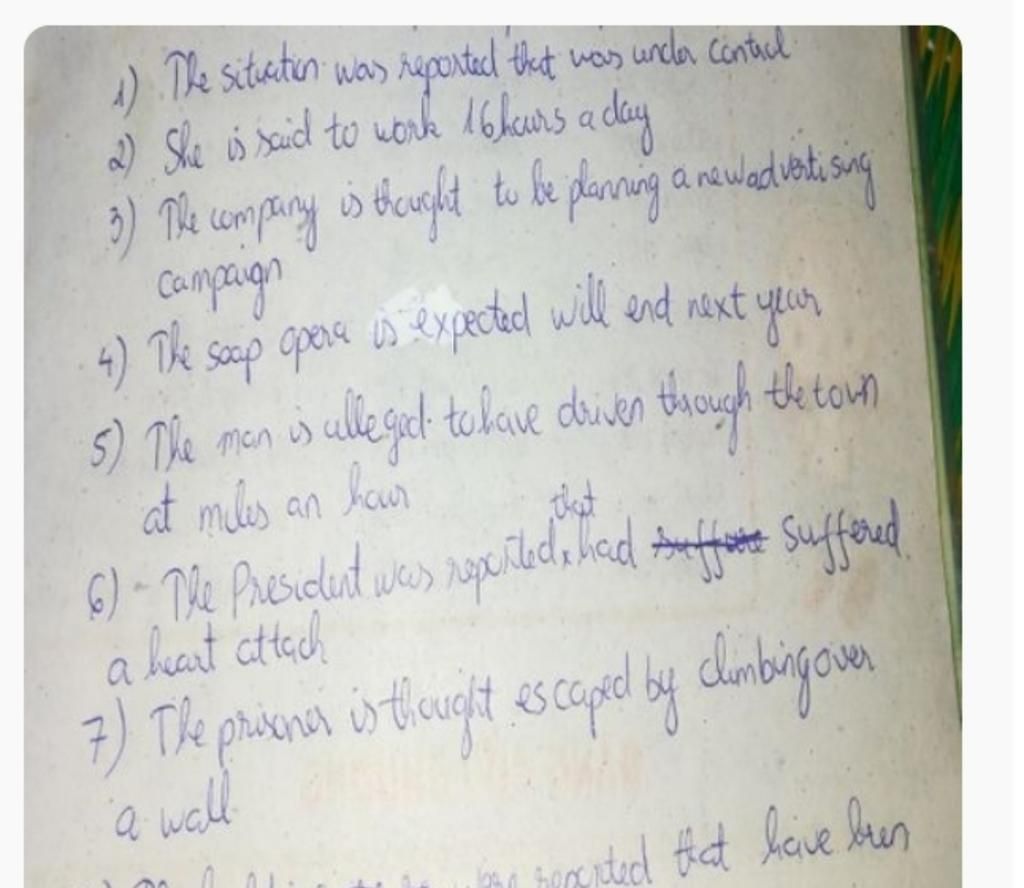 1) The situation was reported that was under control
2) She is said to work 16 hours a day
3) The company is thought to be planning a new advertising
campaign
4) The soap opera is expected will end next year
5) The man is alleged to have driven through the town
at miles an hour
that
6) - The President was reported had suffered
a heart attach
7) The prisoner is thought escaped by climbing over
a wall
were reported that have been